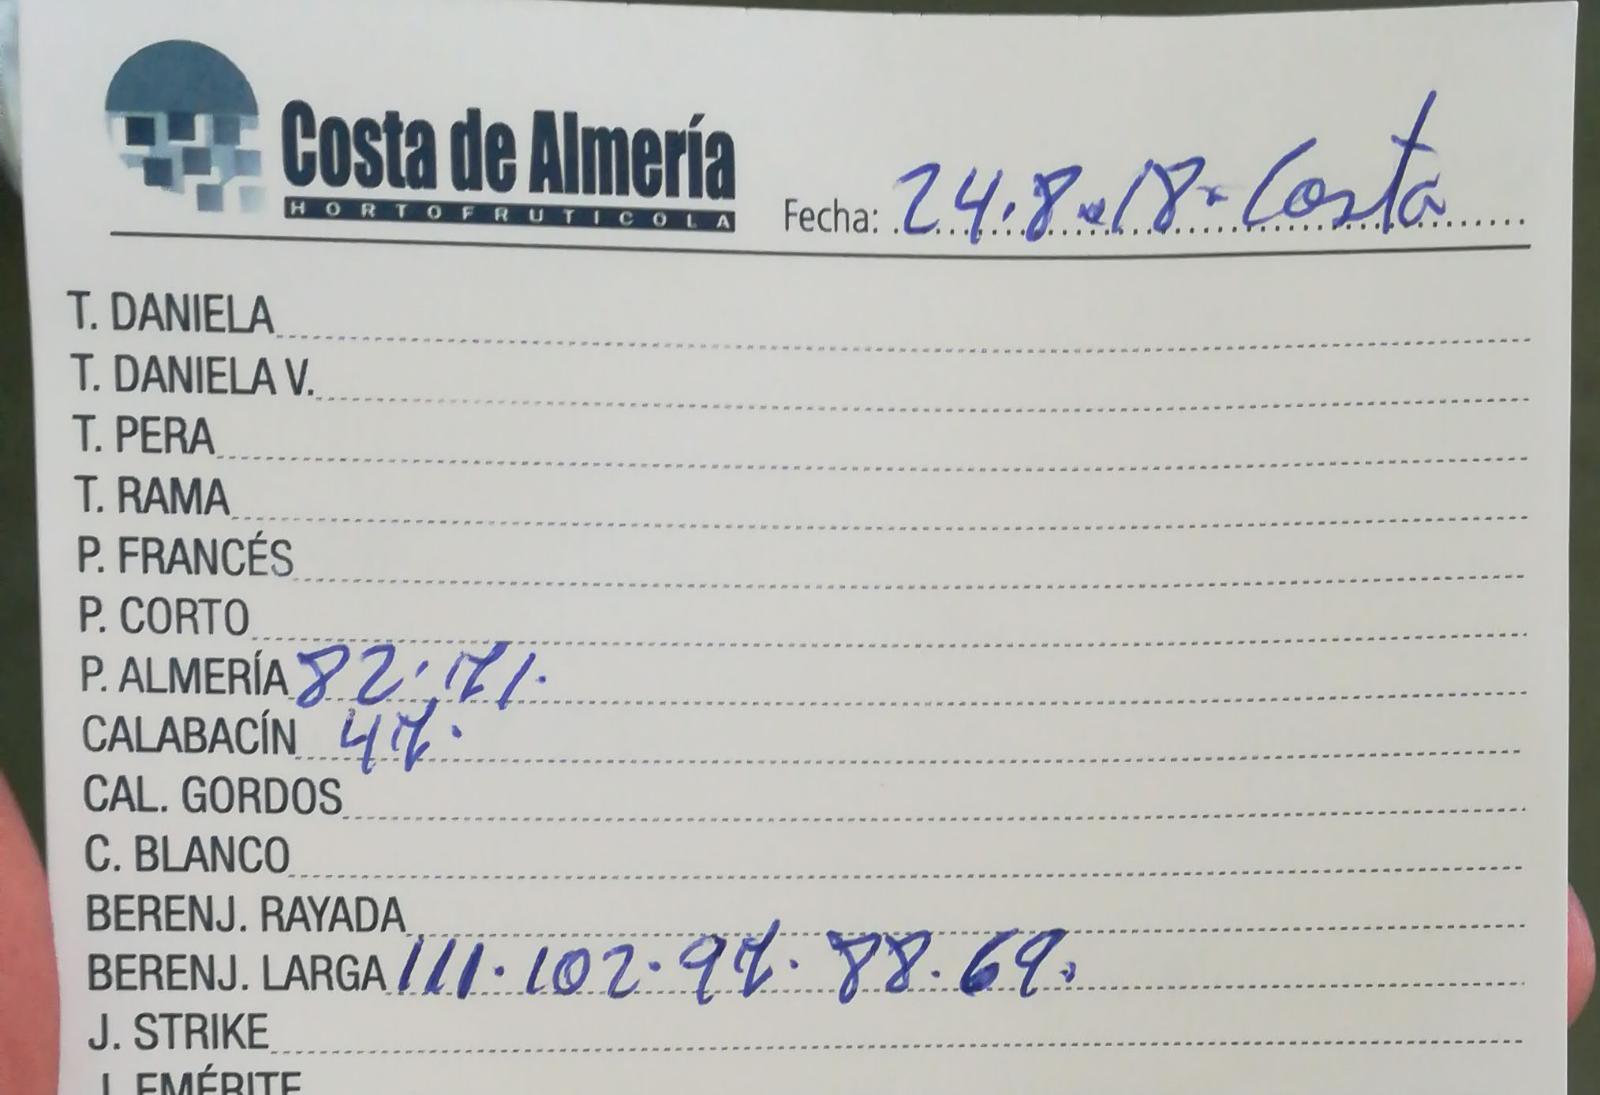 Costa de Almería
HORTOFRUTICOLA
Fecha: 24.8.18. Costa
T. DANIELA
T. DANIELA V.
T. PERA
T. RAMA
P. FRANCÉS
P. CORTO
P. ALMERÍA 82.71.
CALABACÍN 47.
CAL. GORDOS
C. BLANCO
BERENJ. RAYADA
BERENJ. LARGA 111.102.97.88.69.
J. STRIKE
J. EMÉRITE